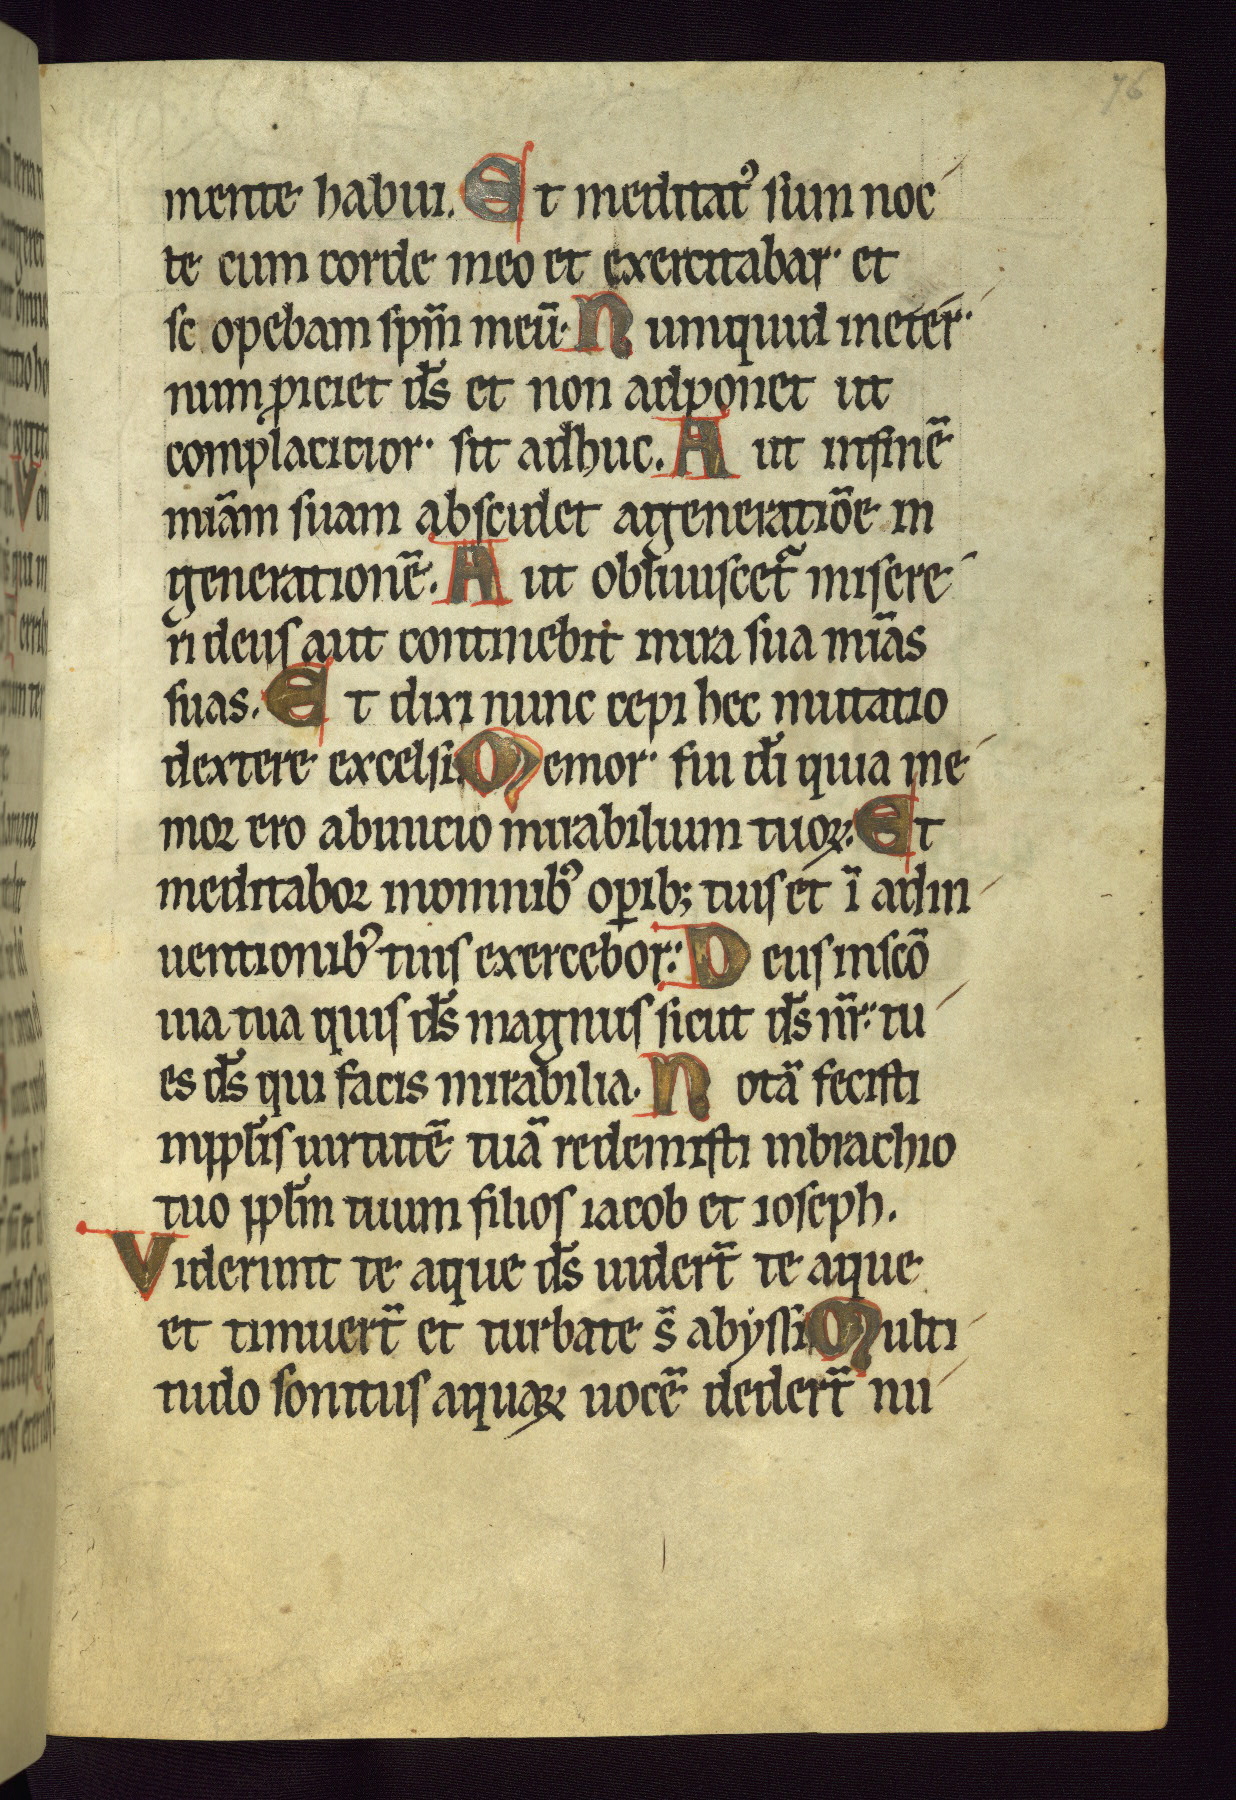 76
mente habui. Et meditatꝰ sum noc
te cum corde meo et exercitabar et
sc opebam spm̄ meū. Nunquid in eter
num ꝓiciet ds̄ et non adponet ut
complacitior sit adhuc. Aut infinē
mīam suam abscidet a generatiōe in
generationē. Aut obliuiscetᷓ misere
ri deus aut continebit in ira sua mīas
suas. Et dixi nunc cepi hec mutatio
dextere excelsi. Memor fui dn̄i quia me
moꝛ ero ab inicio mirabilium tuoꝝ. Et
meditaboꝛ in omnibꝰ oꝑib; tuis et ī adin
uentionibꝰ tuis exercebor: Deus in scō
uia tua quis ds̄ magnus sicut ds̄ nr̄: tu
es ds̄ qui facis mirabilia. Notā fecisti
in ppl̄is uirtutē tuā redemisti in brachio
tuo ppl̄m tuum filios iacob et ioseph.
Viderunt te aque ds̄ uidert̄ te aque
et timuert̄ et turbate s̄ abyssi Multi
tudo sonitus aquaꝝ uocē dedert̄ nu